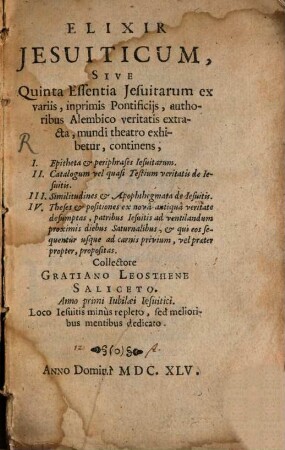 ELIXIR
JESUITICUM,
SIVE
Quinta Essentia Jesuitarum ex
variis, inprimis Pontificijs, autho-
ribus Alembico veritatis extra-
cta, mundi theatro exhi-
betur, continens,
R
I. Epitheta & periphrases Iesuitarum.
II. Catalogum vel quasi Testium veritatis de Ie-
suitis.
III. Similitudines & Apophthegmata de Iesuitis.
IV. Theses & positiones ex novâ-antiquâ veritate
desumptas, patribus Iesuitis ad ventilandum
proximis diebus Saturnalibus, & qui eos se-
quentur usque ad carnis privium, vel præter
propter, propositas.
Collectore
GRATIANO LEOSTHENE
SALICETO.
Anno primi Iubilæi Iesuitici.
Loco Iesuitis minùs repleto, sed meliori-
bus mentibus dedicato.
Anno Domini MDC. XLV.